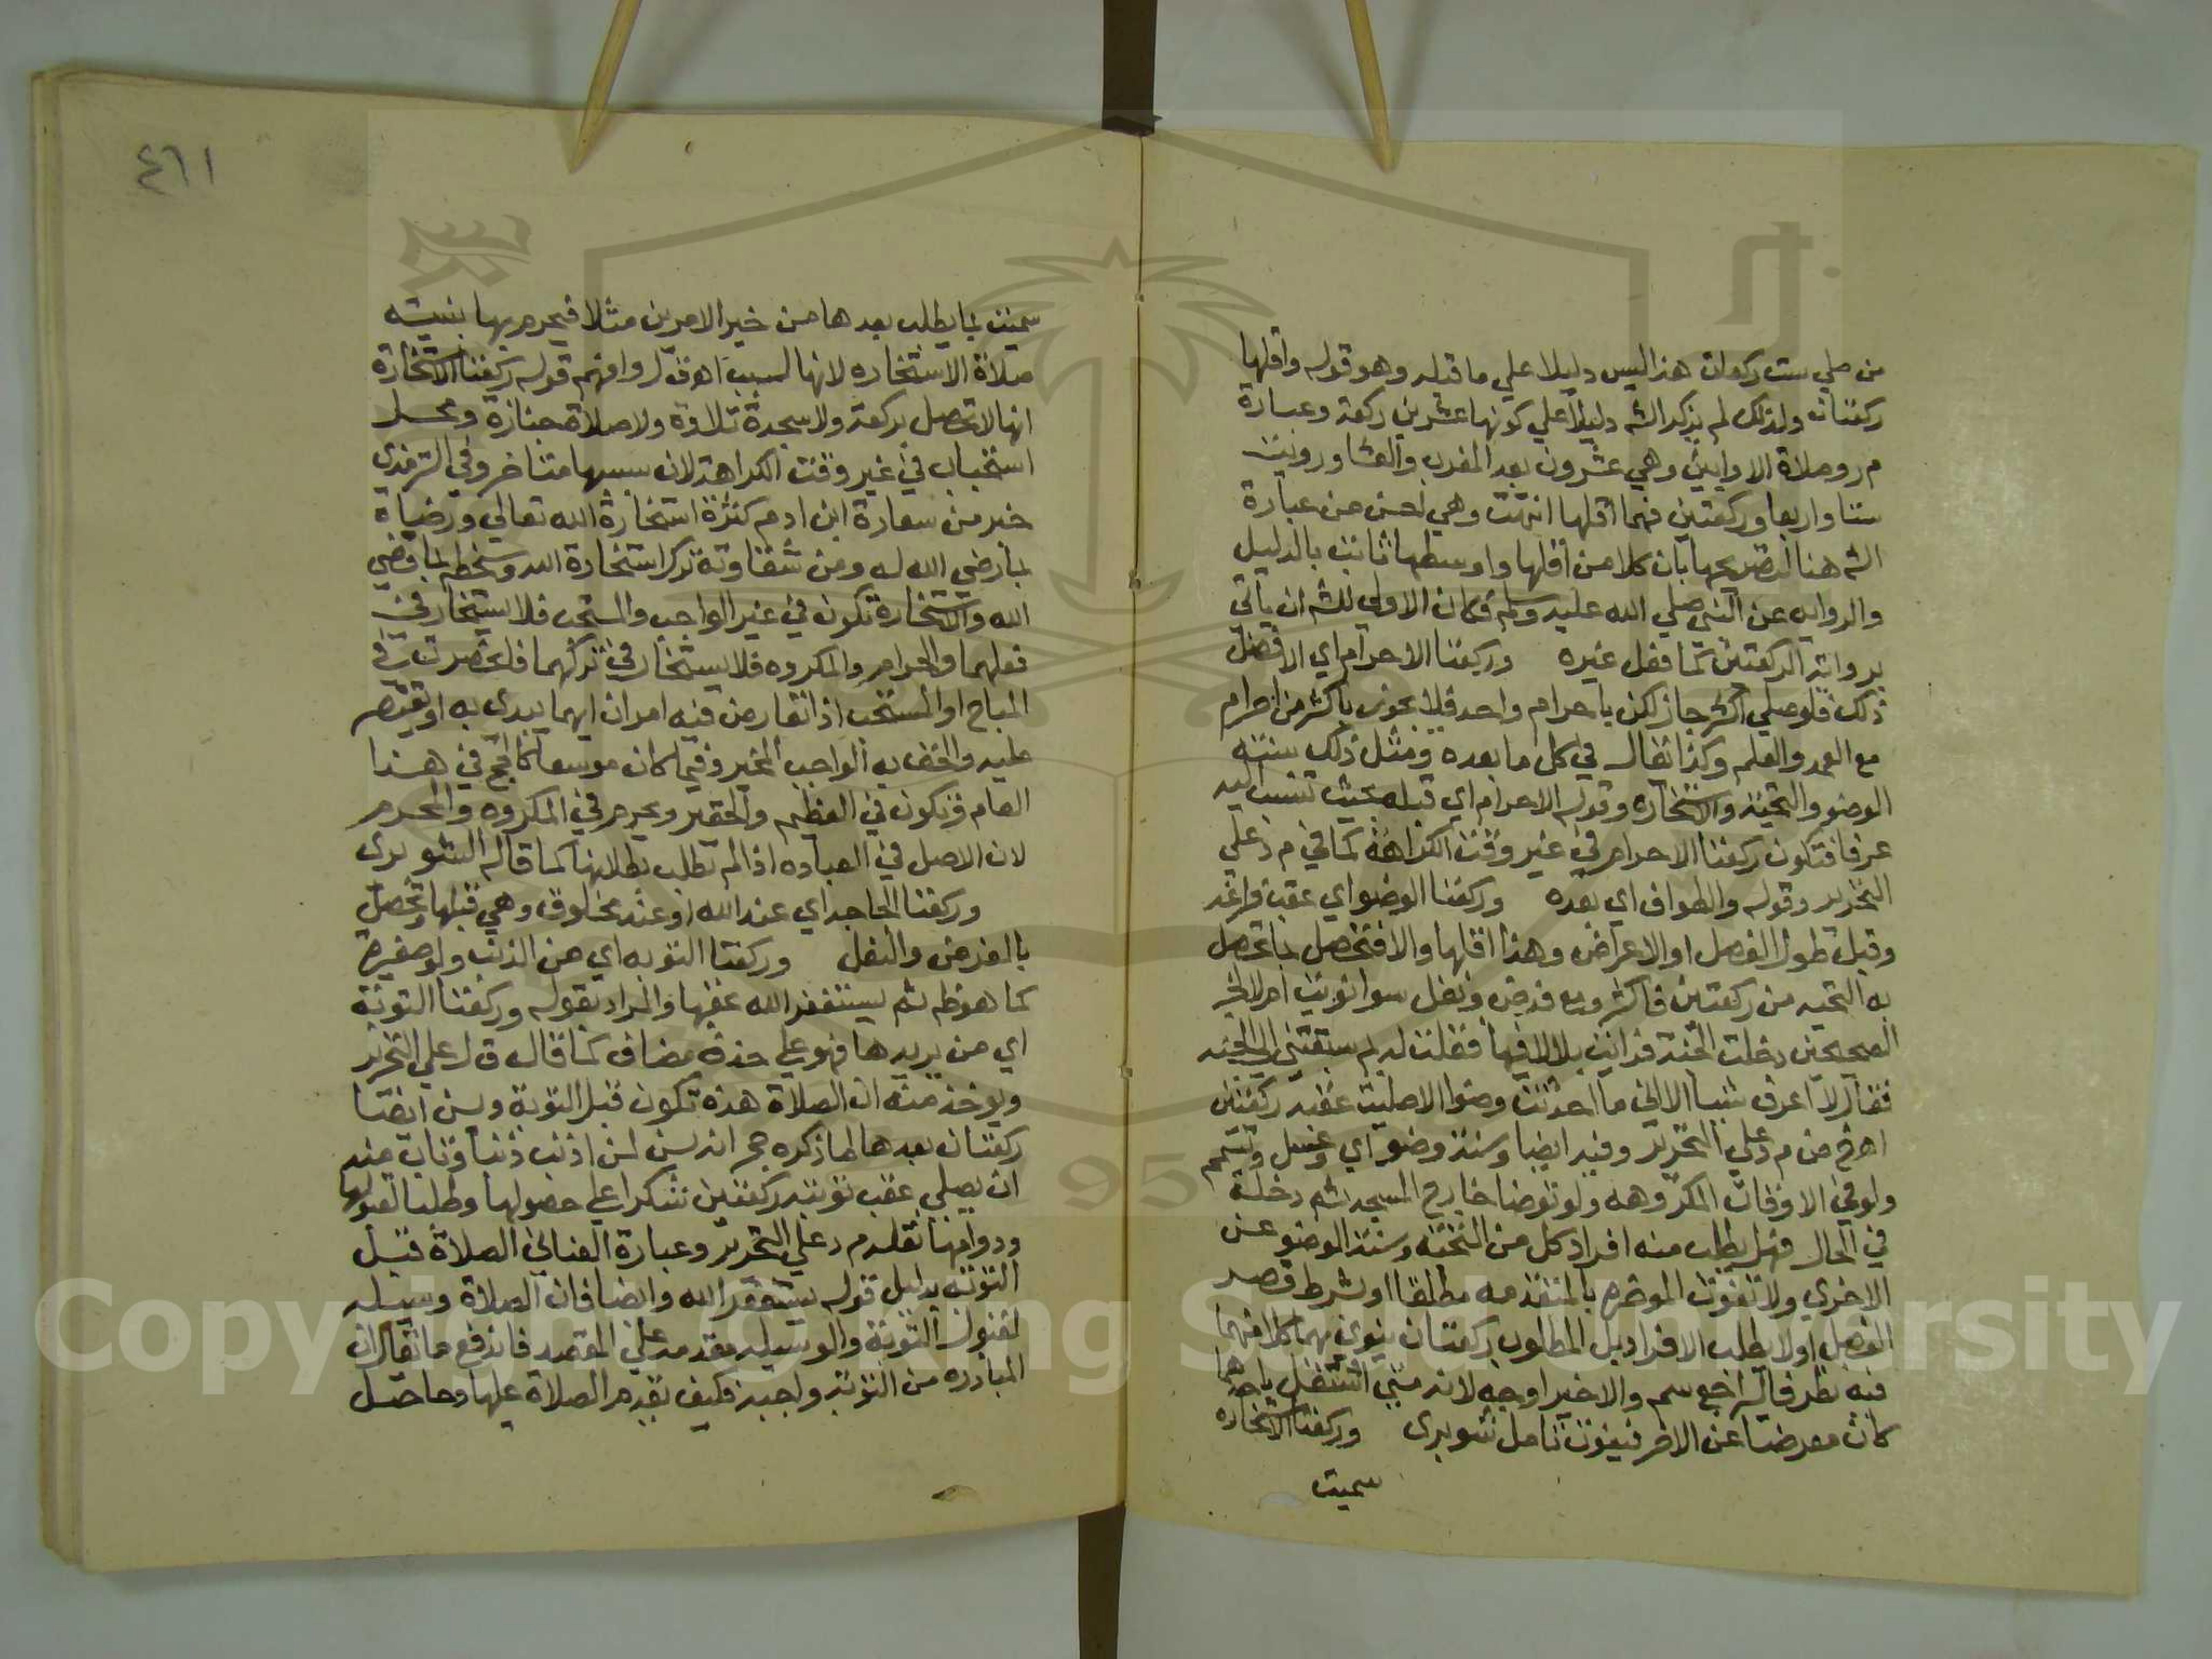 من صلي ست ركعات هذا ليس دليلا علي ما قبله وهو قوله واقلها
ركعتان ولذلك لم يذكر الشه دليلا علي كونها عشرين ركعة وعبارة
م ر وصلاة الاوابين وهي عشرون بعد المغرب والعشا ورويت
ستا واربعا وركعتين فهما اقلها انتهت وهي احسن من عبارة
الشه هنا لتصريحها بان كلا من اقلها واوسطها ثابت بالدليل
والروايه عن النبي صلي الله عليه وسلم فكان الاولي للشه ان ياتي
برواية الركعتين كما فعل غيره وركعتا الاحرام اي الافضل
ذلك فلو صلي اكثر جاز لكن باحرام واحد فلا يجوز باكثر من احرام
مع العمد والعلم وكذا يقال في كل ما بعده ومثل ذلك سنته
الوضو والتحية والاستخارة وقوله الاحرام اي قبله بحيث تنسب اليه
عرفا فتكون ركعتا الاحرام في غير وقت الكراهة كما في م د علي
التحرير وقوله والطواف اي بعده وركعتا الوضو اي عقب فراغه
وقبل طول الفصل او الاعراض وهذا اقلها والا فتحصل بما تحصل
به التحيه من ركعتين فاكثر ومع فرض ونفل سوا نويت ام لا لخبر
الصحيحين دخلت الجنة فرايت بلالا فيها فقلت له بم سبقتني الي الجنه
فقال لا اعرف شيا الا اني ما احدثت وضوا الا صليت عقبه ركعتين
اهـ من م د علي التحرير وفيه ايضا وسنة وضو اي وغسل وتيمم
ولو في الاوقات المكروهه ولو توضا خارج المسجد ثم دخله
في الحال فهل يطلب منه افراد كل من التحيه وسنة الوضو عن
الاخري ولا تفوت الموخره بالمتقدمه مطلقا او بشرط قصر
الفصل او لا يطلب الافراد بل المطلوب ركعتان ينوي بهما كلا منهما
فيه نظر قاله اجع سم والاخير اوجه لانه متي اشتغل باحدهما
كان معرضا عن الاخر فيفوت تامل شوبري وركعتا الاستخاره
سميت
٤٦١
سميت بما يطلب بعدها من خير الامرين مثلا فيحرم بها بنيته
صلاة الاستخاره لانها لسبب اهـ ق ل وافهم قوله ركعتا الاستخارة
انها لا تحصل بركعة ولا سجدة تلاوة ولا صلاة جنازة ومحل
استحباب في غير وقت الكراهة لان سببها متاخر وفي الترمذي
خبر من سعادة ابن ادم كثرة استخارة الله تعالي ورضاه
بما رضي الله له ومن شقاوته ترك استخارة الله وسخطه بما قضي
الله والاستخارة تكون في غير الواجب والمستحب فلا يستخار في
فعلهما والحرام والمكروه فلا يستخار في تركهما فانحصرت في
المباح او المستحب اذا تعارض فيه امران ايهما يبدي به او يقتصر
عليه والحق به الواجب المخير وفيما كان موسعا كالحج في هذا
العام وتكون في العظيم والحقير ويحرم في المكروه والمحرم
لان الاصل في العباده اذا لم تطلب بطلانها كما قاله الشوبري
وركعتا الحاجه اي عند الله او عند مخلوق وهي قبلها وتحصل
بالفرض والنفل وركعتا التوبه اي من الذنب ولو صغيره
كما هو ظه ثم يستغفر الله عقبها والمراد بقوله وركعتا التوبة
اي من يريدها فهو علي حذف مضاف كما قاله ق ل علي التحرير
ويوخذ منه ان الصلاة هذه تكون قبل التوبة ويسن ايضا
ركعتان بعدها لما ذكره حجر انه يسن لمن اذنب ذنبا وتاب منه
ان يصلي عقب توبته ركعتين شكرا علي حصولها وطلبا لقبولها
ودوامها نقله م د علي التحرير وعبارة العناني الصلاة قبل
التوبه بدليل قوله يستغفر الله وايضا فان الصلاة وسيله
لقبول التوبة والوسيله مقدمه علي المقصد فاندفع ما يقال ان
المبادره من التوبة واجبة فكيف تقدم الصلاة عليها وحاصل